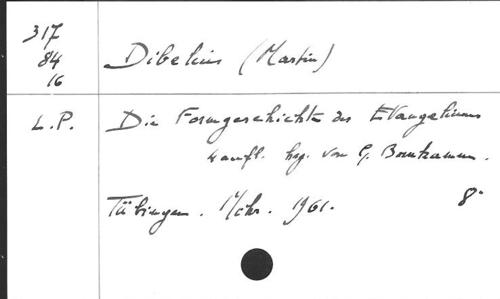 317
84
16
Dibelius (Martin)
L.P. Die Formgeschichte des Evangeliums
4 aufl. hrg. von G. Bornkamm.
Tübingen. Mohr. 1961. 8°